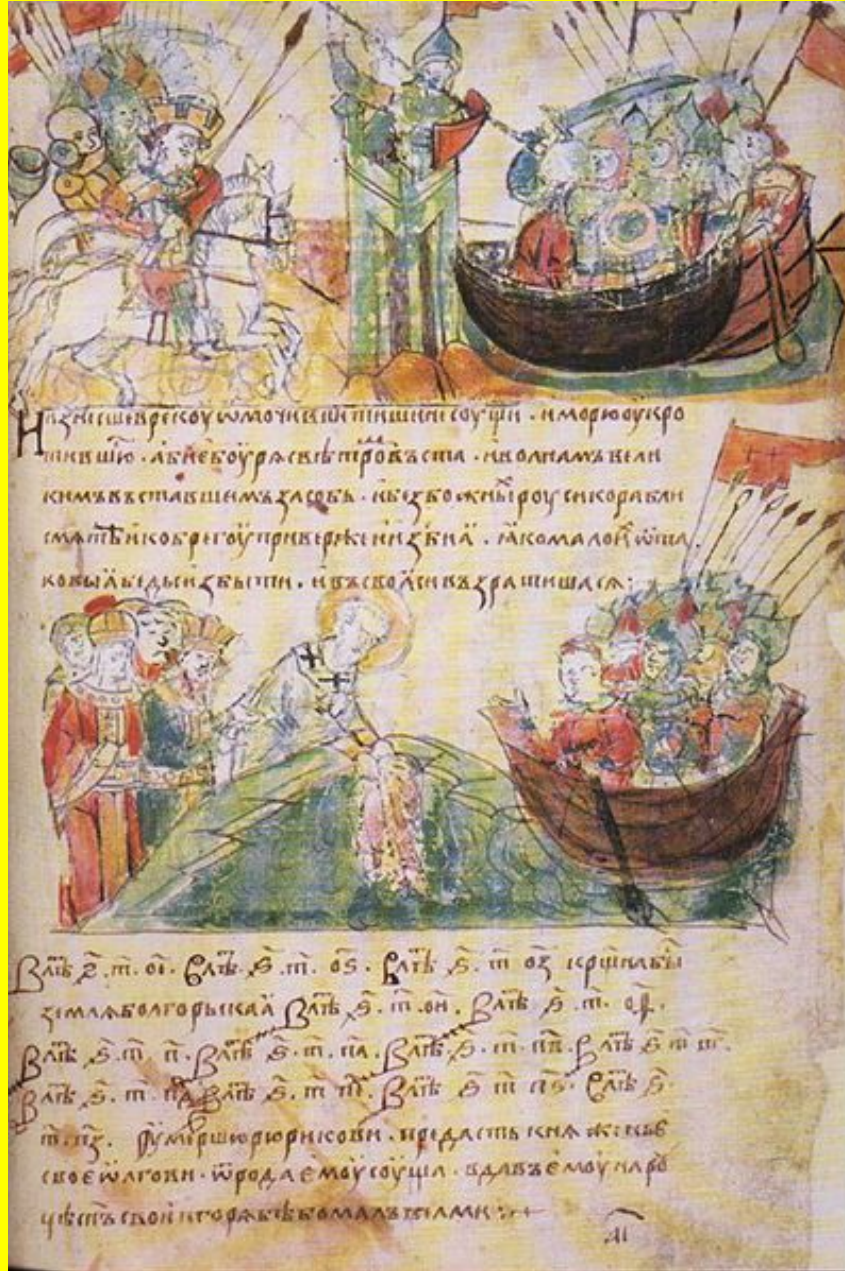 Иꙁнесше в рекоу ѡмочивши тишинѣ соущи · и морю оукро
тившюⷭ · абие боурѧ с вѣтроⷨ въста · и волнамъ вели
кимъ въставшемъ ꙁасобь · и беꙁбожныⷯ роуси корабли
смѧте и ко брегоу привержеи иꙁби ꙗ · ꙗко мало иⷯ ѿ та
ковыѧ беды иꙁбыти · и въ своѧси въꙁратишасѧ :
В лѣⷮ ѕ҃ · т҃ · ое҃ · В лѣⷮ ѕ҃ · т҃ · оѕ҃ · В лѣⷮ ѕ҃ · т҃ оꙁ҃ крщна быⷭ
ꙁемлѧ болгорьскаꙗ В лѣⷮ ѕ҃ · т҃ · ои҃ · В лѣⷮ ѕ҃ · т҃ · оѳ҃ ·
В лѣⷮ ѕ҃ · т҃ · п҃ · В лѣⷮ ѕ҃ · т҃ · па҃ · В лѣⷮ ѕ҃ · т҃ · пв҃ · В лѣⷮ ѕ҃ т҃ пг҃ ·
В лѣⷮ ѕ҃ · т҃ пд҃ В лѣⷮ ѕ҃ т҃ пе҃ · В лѣⷮ ѕ҃ т҃ пѕ҃ · В лѣⷮ ѕ҃ ·
т҃ пꙁ҃ · Оумершю рюрикови · предасть кнѧженье
свое ѡлгови · ѿ рода емоу соуща · вдавъ емоу на роу
цѣ снъ свои игорѧ бѣ бо малъ велми :
аі